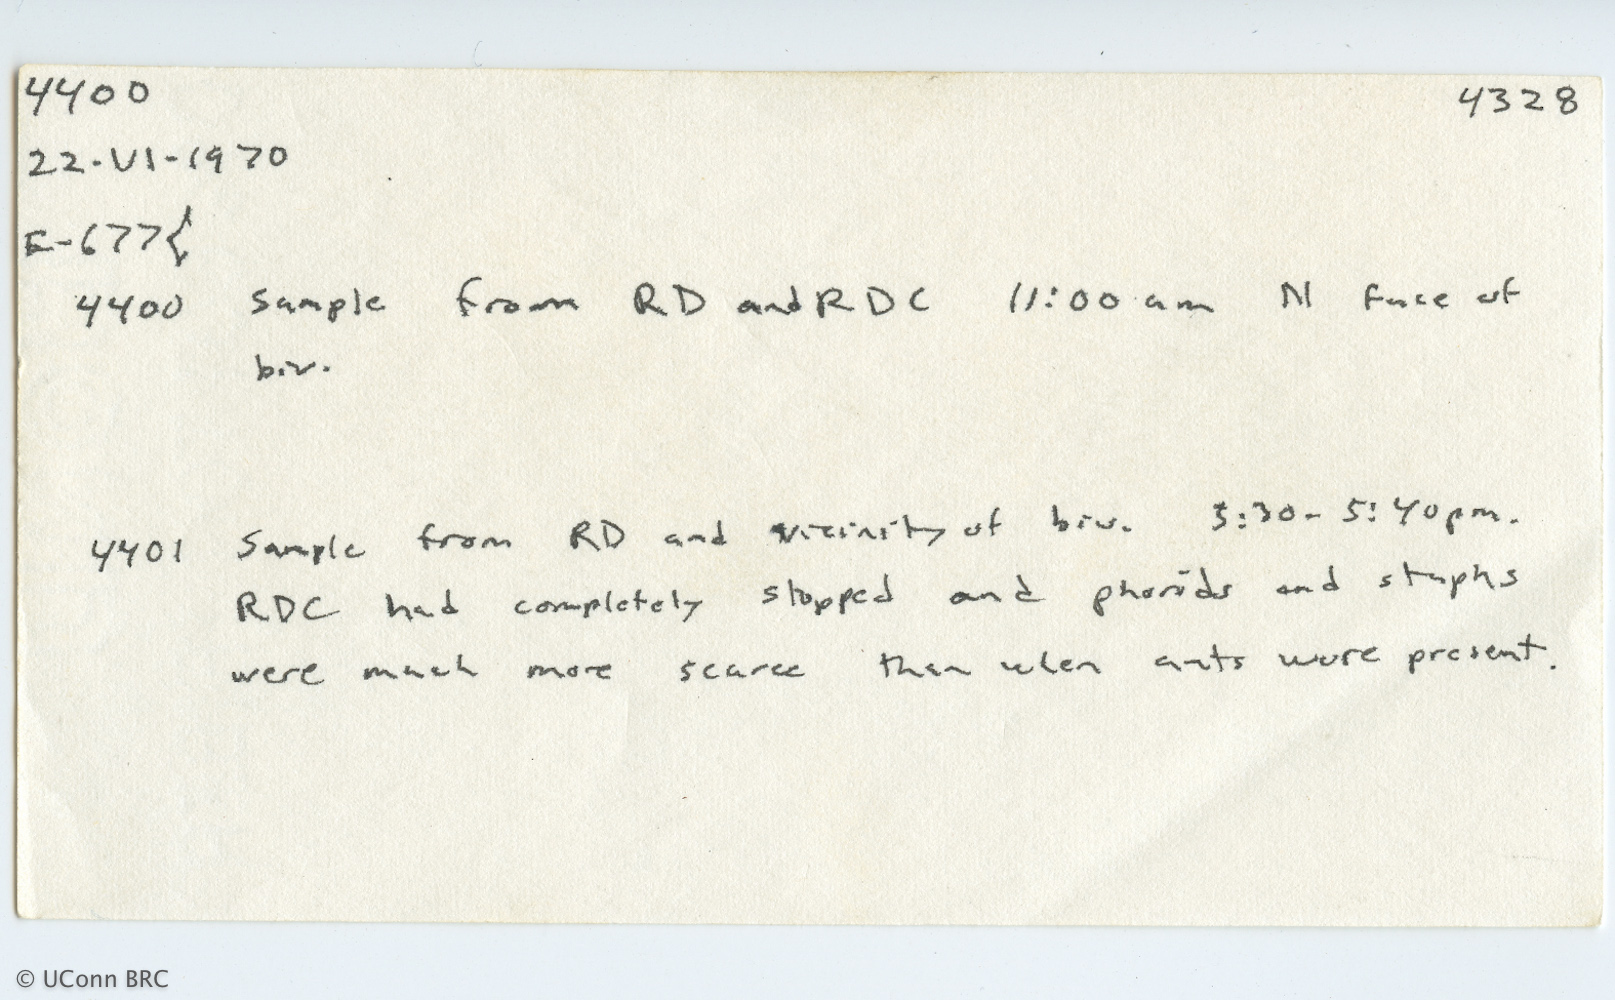 4400 4328
22-VI-1970
E-677{
4400 Sample from RD and RDC 11:00 am N face of
biv.
4401 Sample from RD and vicinity of biv. 5:30-5:40pm.
RDC had completely stopped and phorids and staphs
were much more scarce than when ants were present.
© UConn BRC